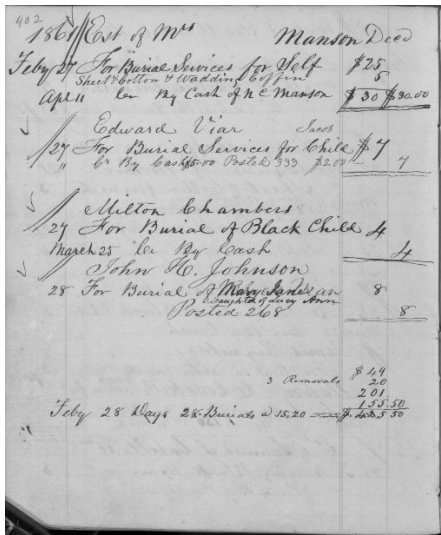 402
186 Est of Mrs Manson Decd
Feby 27 For Burial Services for Self $25
Sheet Cotton & Wadding Coffin 5
Apl 11 Cr By Cash of N C Manson $30 $30.00
Edward Viar Jacob
27 For Burial Services for Child $7
" Cr By Cash $5.00 Posted 333 $2.00 7
Milton Chambers
27 For Burial of Black Child 4
March 25 Cr By Cash 4
John H. Johnson
28 For Burial of Mary Jane 8
Daughter of Lucy Ann
Posted 268 8
$ 49
3 Removals 20
201
155.50
Feby 28 Days 28 Burials a 15,20 $ 425 50